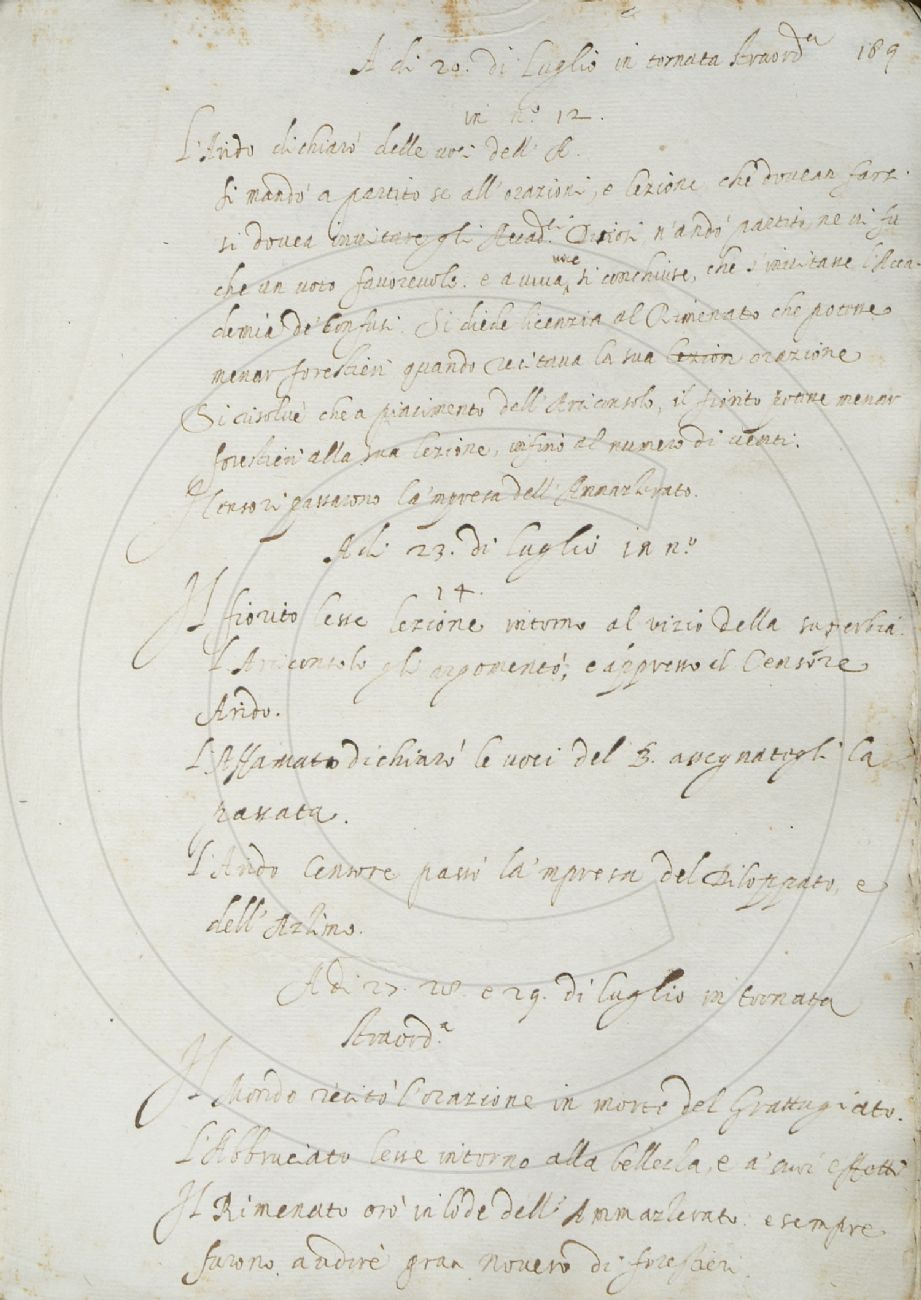 A di 20. di Luglio in tornata straord.a 189
in n.o 12.
L'Arido dichiarò delle voci dell' A.
Si mandò a partito se all' orazioni, e lezione, che dovean farsi
si dovea invitare gli Accad.i n'andò partito, ne vi fu
che un voto favorevole. e a viva voce si conchiuse, che s'invitasse l'Acca-
demia de' Confusi. Si diede licenzia al Rimenato che potesse
menar forestieri quando recitava la sua lezion orazione
Si risolvè che a piacimento dell' Arciconsolo, il fiorito potesse menar
forestieri alla sua lezione, insino al numero di venti.
I Censori passarono la 'mpresa dell' Ammazzerato.
A di 23. di Luglio in n.o
14.
Il fiorito lesse lezione intorno al vizio della superbia.
L'Arciconsolo gli argomentò, e appresso il Censore
Arido.
L'Affamato dichiarò le voci del B. assegnategli la
passata.
L'Arido Censore passò la 'mpresa del Diloppato, e
dell' Azzimo.
A di 27. 28. e 29. di Luglio in tornata
straord.a
Il Mondo recitò l'orazione in morte del Grattugiato.
L'Abbruciato lesse intorno alla bellezza, e a' suoi effetti
Il Rimenato orò in lode dell' Ammazzerato. e sempre
furono a udire gran novero di forestieri